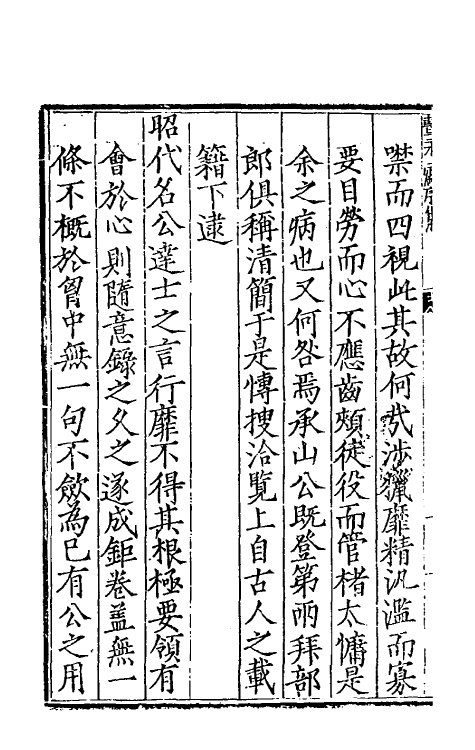 噤而四視此其故何㢤涉獵靡精汎濫而寡
要目勞而心不應齒頰徒役而管楮太慵是
余之病也又何咎焉承山公既登第而拜部
郎俱稱清簡于是愽搜洽覽上自古人之載
籍下逮
昭代名公達士之言行靡不得其根極要領有
會於心則隨意錄之久之遂成鉅卷盖無一
條不概於胷中無一句不斂為已有公之用